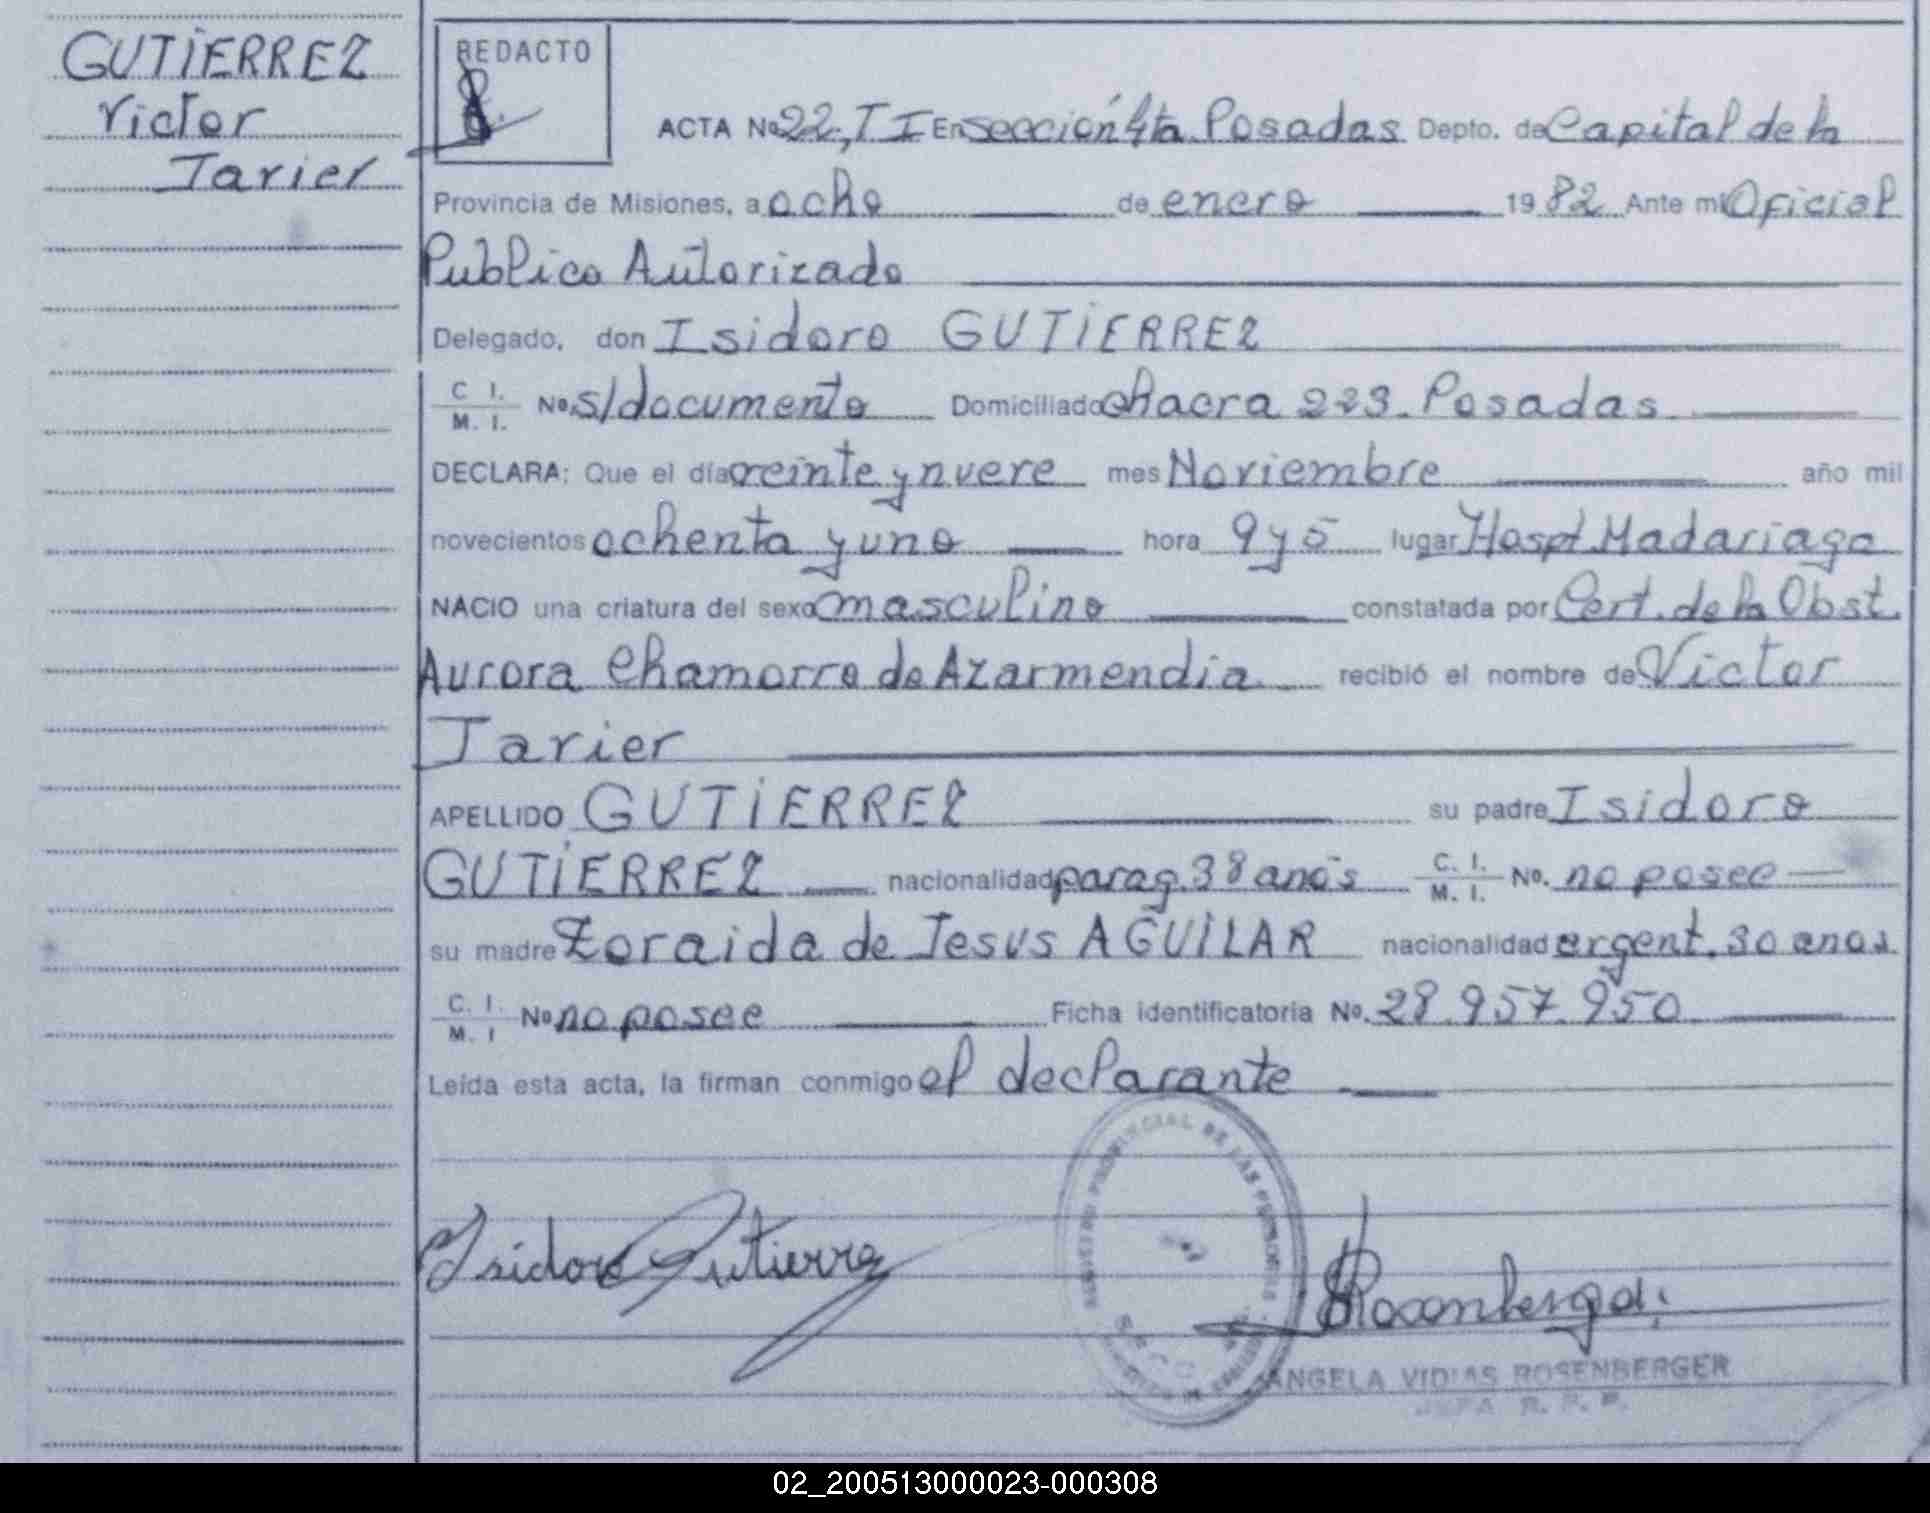 GUTIERREZ
Victor
Javier
REDACTO
ACTA No 22, T I En sección 4ta Posadas Depto. de Capital de la
Provincia de Misiones, a ocho de enero 1982 Ante mi Oficial
Publico Autorizado
Delegado, don Isidoro GUTIERREZ
C. I. M. I. No. s/documento Domiciliado chacra 223. Posadas
DECLARA: Que el día veinte y nueve mes Noviembre año mil
novecientos ochenta y uno hora 9 y 5 lugar Hospt. Madariaga
NACIO una criatura del sexo masculino constatada por Cert. de la Obst.
Aurora Chamorro de Azarmendia recibió el nombre de Victor
Javier
APELLIDO GUTIERREZ su padre Isidoro
GUTIERREZ nacionalidad parag. 38 años C. I. M. I. No. no posee
su madre Zoraida de Jesus AGUILAR nacionalidad argent. 30 anos
C. I. M. I No no posee Ficha identificatoria No. 28.957.950
Leída esta acta, la firman conmigo el declarante
Isidoro Gutierrez
PROVINCIAL DE LAS PERSONAS
ANGELA VIDIAS ROSENBERGER
JEFA R. P. P.
02_200513000023-000308